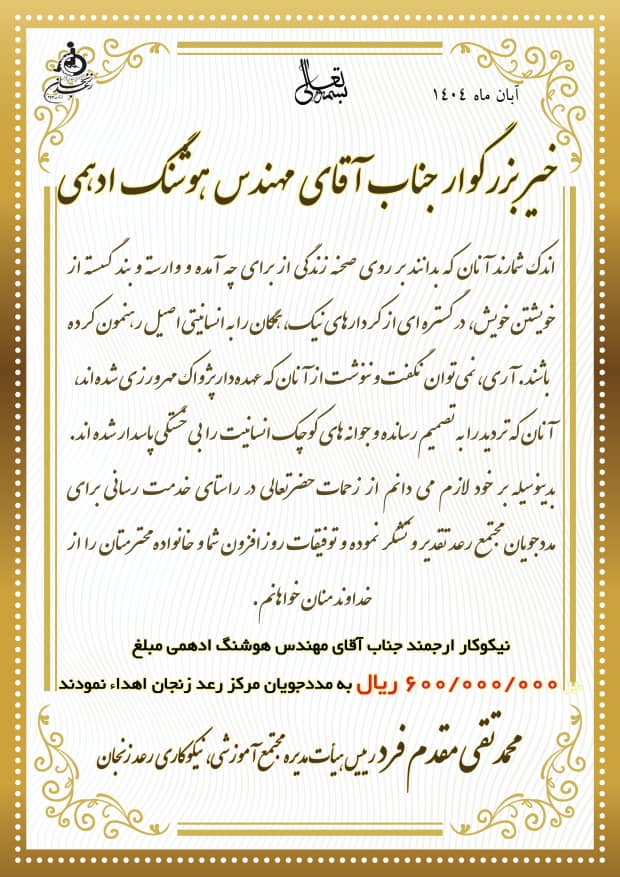 بسمه تعالی
آبان ماه ۱۴۰۴
خیر بزرگوار جناب آقای مهندس هوشنگ ادهمی
اندک شمارند آنان که بدانند بر روی صحنه زندگی از برای چه آمده و وارسته و بند گسسته از
خویشتن خویش، در گستره ای از کردارهای نیک، همگان را به انسانیتی اصیل رهنمون کرده
باشند. آری، نمی توان نگفت و ننوشت از آنان که عهده دار پژواک مهرورزی شده اند،
آنان که تردید را به تصمیم رسانده و جوانه های کوچک انسانیت را بی خستگی پاسدار شده اند.
بدینوسیله بر خود لازم می دانم از زحمات حضرتعالی در راستای خدمت رسانی برای
مددجویان مجتمع رعد تقدیر و تشکر نموده و توفیقات روزافزون شما و خانواده محترمتان را از
خداوند منان خواهانم.
نیکوکار ارجمند جناب آقای مهندس هوشنگ ادهمی مبلغ
۶۰۰/۰۰۰/۰۰۰ ریال به مددجویان مرکز رعد زنجان اهداء نمودند
محمد تقی مقدم فرد رییس هیأت مدیره مجتمع آموزشی، نیکوکاری رعد زنجان